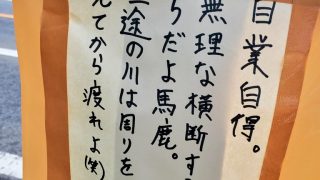 自業自得。
無理な横断す
らだよ馬鹿。
途の川は周りを
てから渡れよ(笑)